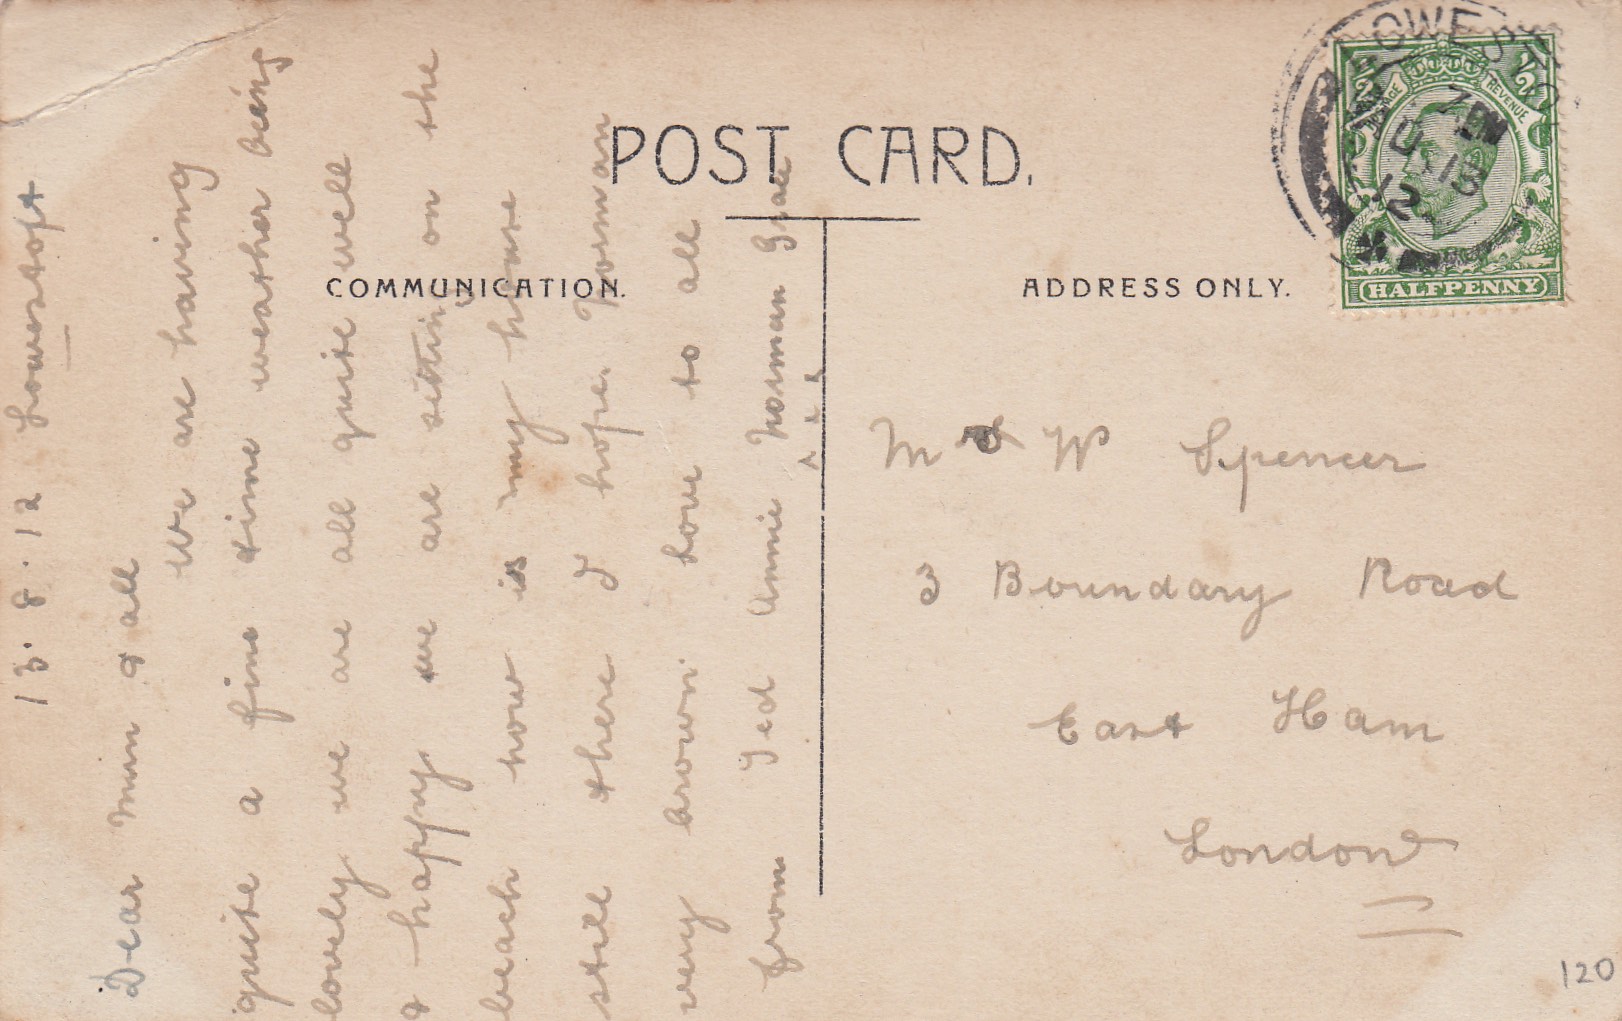 POST CARD.
COMMUNICATION.
ADDRESS ONLY.
13.8.12 Lowestoft
Dear Mum & all
We are having
quite a fine time weather being
lovely we are all quite well
& happy we are sitting on the
beach how is my house
still there I hope. Norman
very brown. Love to all
from Ted Annie Norman Grace
x x x
Mrs W Spencer
3 Boundary Road
East Ham
London
LOWESTO
13
12
1/2 1/2
POSTAGE REVENUE
HALFPENNY
120